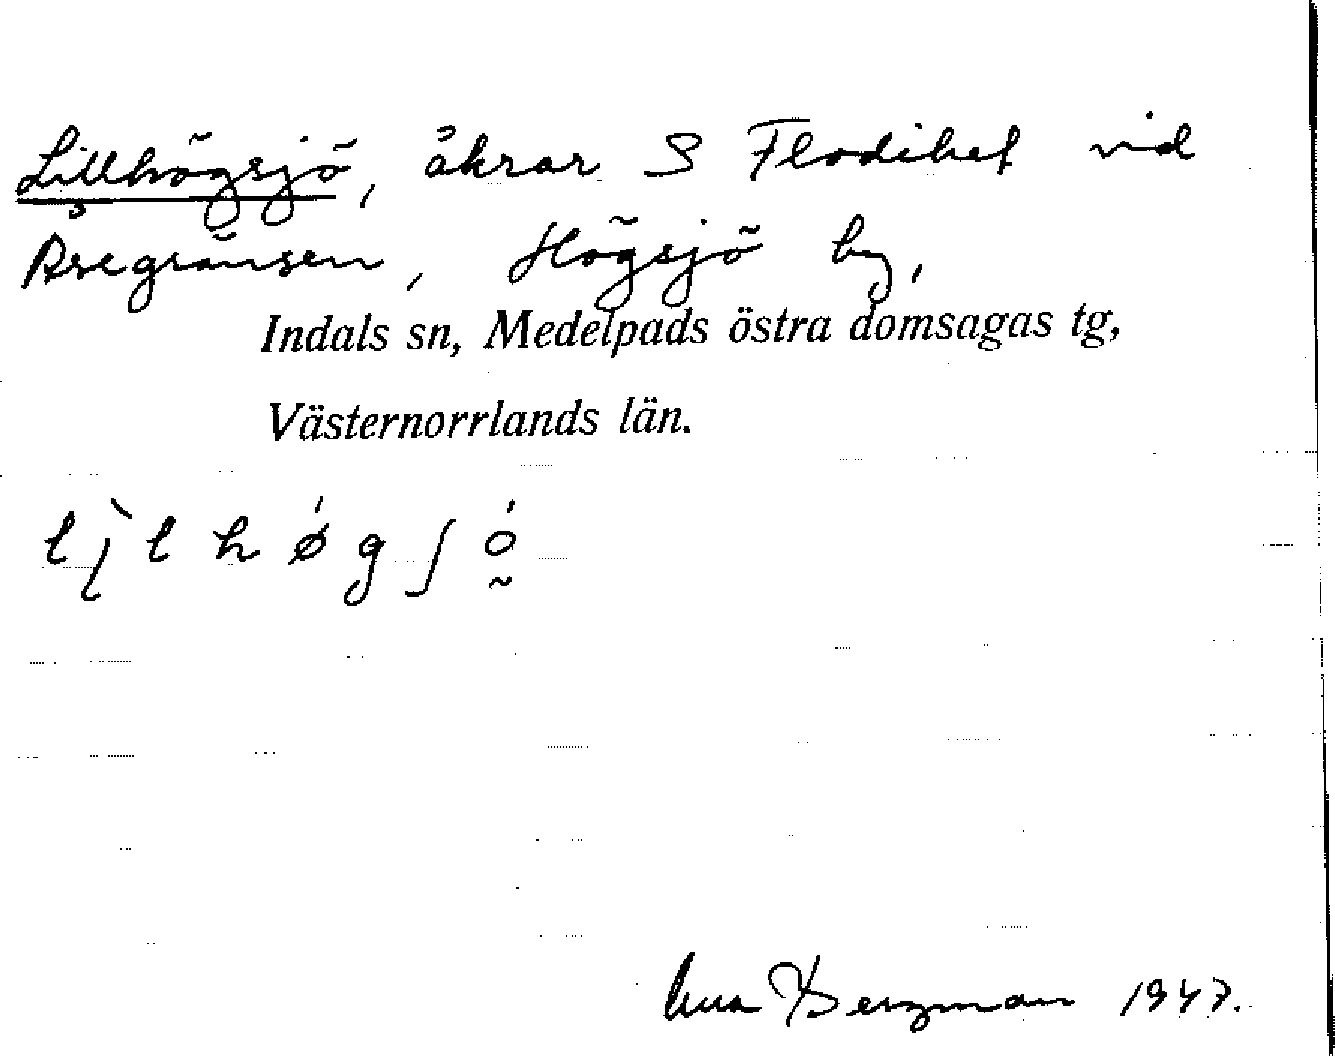 Lillhögsjö, åkrar S Flodihet vid
Åsegränsen, Högsjö by,
Indals sn, Medelpads östra domsagas tg,
Västernorrlands län.
Bergman 1947.